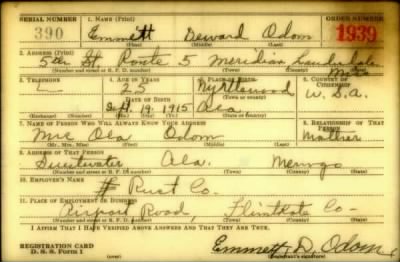 SERIAL NUMBER 1. NAME (Print) ORDER NUMBER
390 Emmett Deward Odom 1939
(First) (Middle) (Last)
2. ADDRESS (Print)
5th St. Route 5 Meridian Lauderdale Miss
(Number and street or R. F. D. number) (Town) (County) (State)
3. TELEPHONE 4. AGE IN YEARS 5. PLACE OF BIRTH 6. COUNTRY OF CITIZENSHIP
25 Myrtlewood U.S.A.
DATE OF BIRTH (Town or county)
Sept. 19, 1915 Ala.
7. NAME OF PERSON WHO WILL ALWAYS KNOW YOUR ADDRESS 8. RELATIONSHIP OF THAT PERSON
Mrs Ola Odom Mother
(Mr., Mrs., Miss) (First) (Middle) (Last)
9. ADDRESS OF THAT PERSON
Sweetwater Ala. Marengo
(Number and street or R. F. D. number) (Town) (County) (State)
10. EMPLOYER'S NAME
Rust Co.
11. PLACE OF EMPLOYMENT OR BUSINESS
Airport Road, Flintkote Co.
(Number and street or R. F. D. number) (Town) (County) (State)
I AFFIRM THAT I HAVE VERIFIED ABOVE ANSWERS AND THAT THEY ARE TRUE.
REGISTRATION CARD
D. S. S. Form 1 (over) Emmett D. Odom
(Registrant's signature)